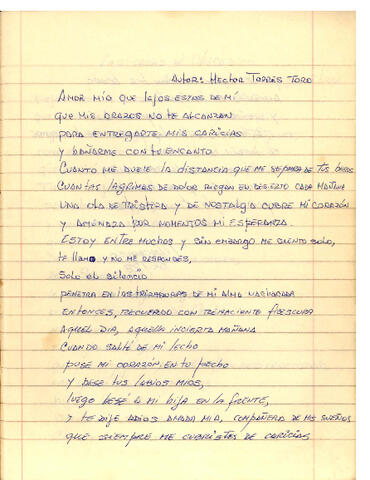 Autor: Hector Torres Toro
Amor mío que lejos estas de mí
que mis brazos no te alcanzan
para entregarte mis caricias
y bañarme con tu encanto
Cuanto me duele la distancia que me separa de tus besos
Cuantas lagrimas de dolor riegan en desierto cada mañana
una ola de tristeza y de nostalgia cubre mi corazón
y amenaza por momentos mi esperanza.
Estoy entre muchos y sin embargo me siento solo,
te llamo y no me respondes,
Solo el silencio
penetra en las de mi alma
entonces, recuerdo con frescura
aquel dia, aquella incierta mañana
cuando salté de mi lecho
puse mi corazón en tu pecho
y besé tus labios mios,
luego besé a mi hija en la frente,
y te dije adios amada mia, compañera de mis sueños
que siempre me cubristes de caricias